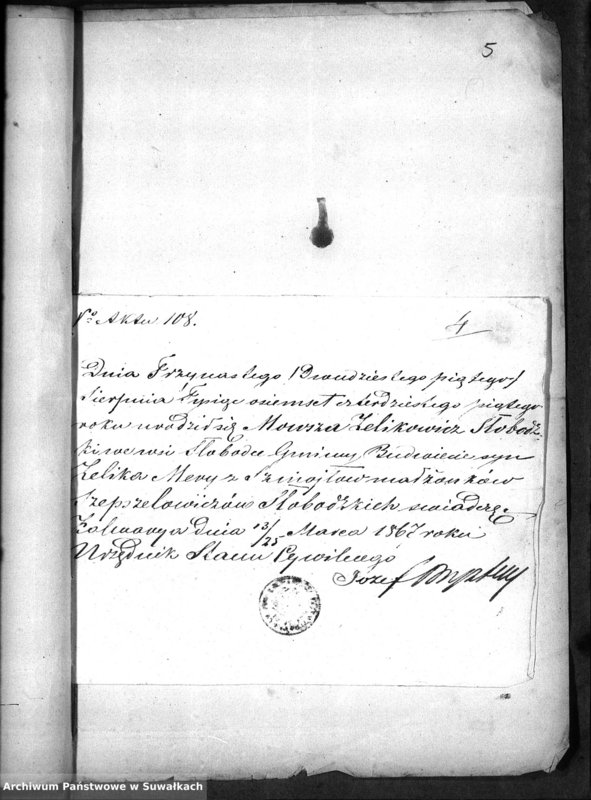 5
No Aktu 108.
4
Dnia Trzynastego /Dwudziestego piątego/
Sierpnia Tysiąc osiemset czterdziestego piątego
roku urodził się Mowsza Zelikowicz Słobodz-
ki we wsi Słobodce Gminy Budwiecie syn
Zelika Mery z Szmojłow małżonków
Szepszelowiczów Słobodzkich świadczę.
Kalwarya dnia 13/25 Marca 1867 roku
Urzędnik Stanu Cywilnego
Józef
Archiwum Państwowe w Suwałkach